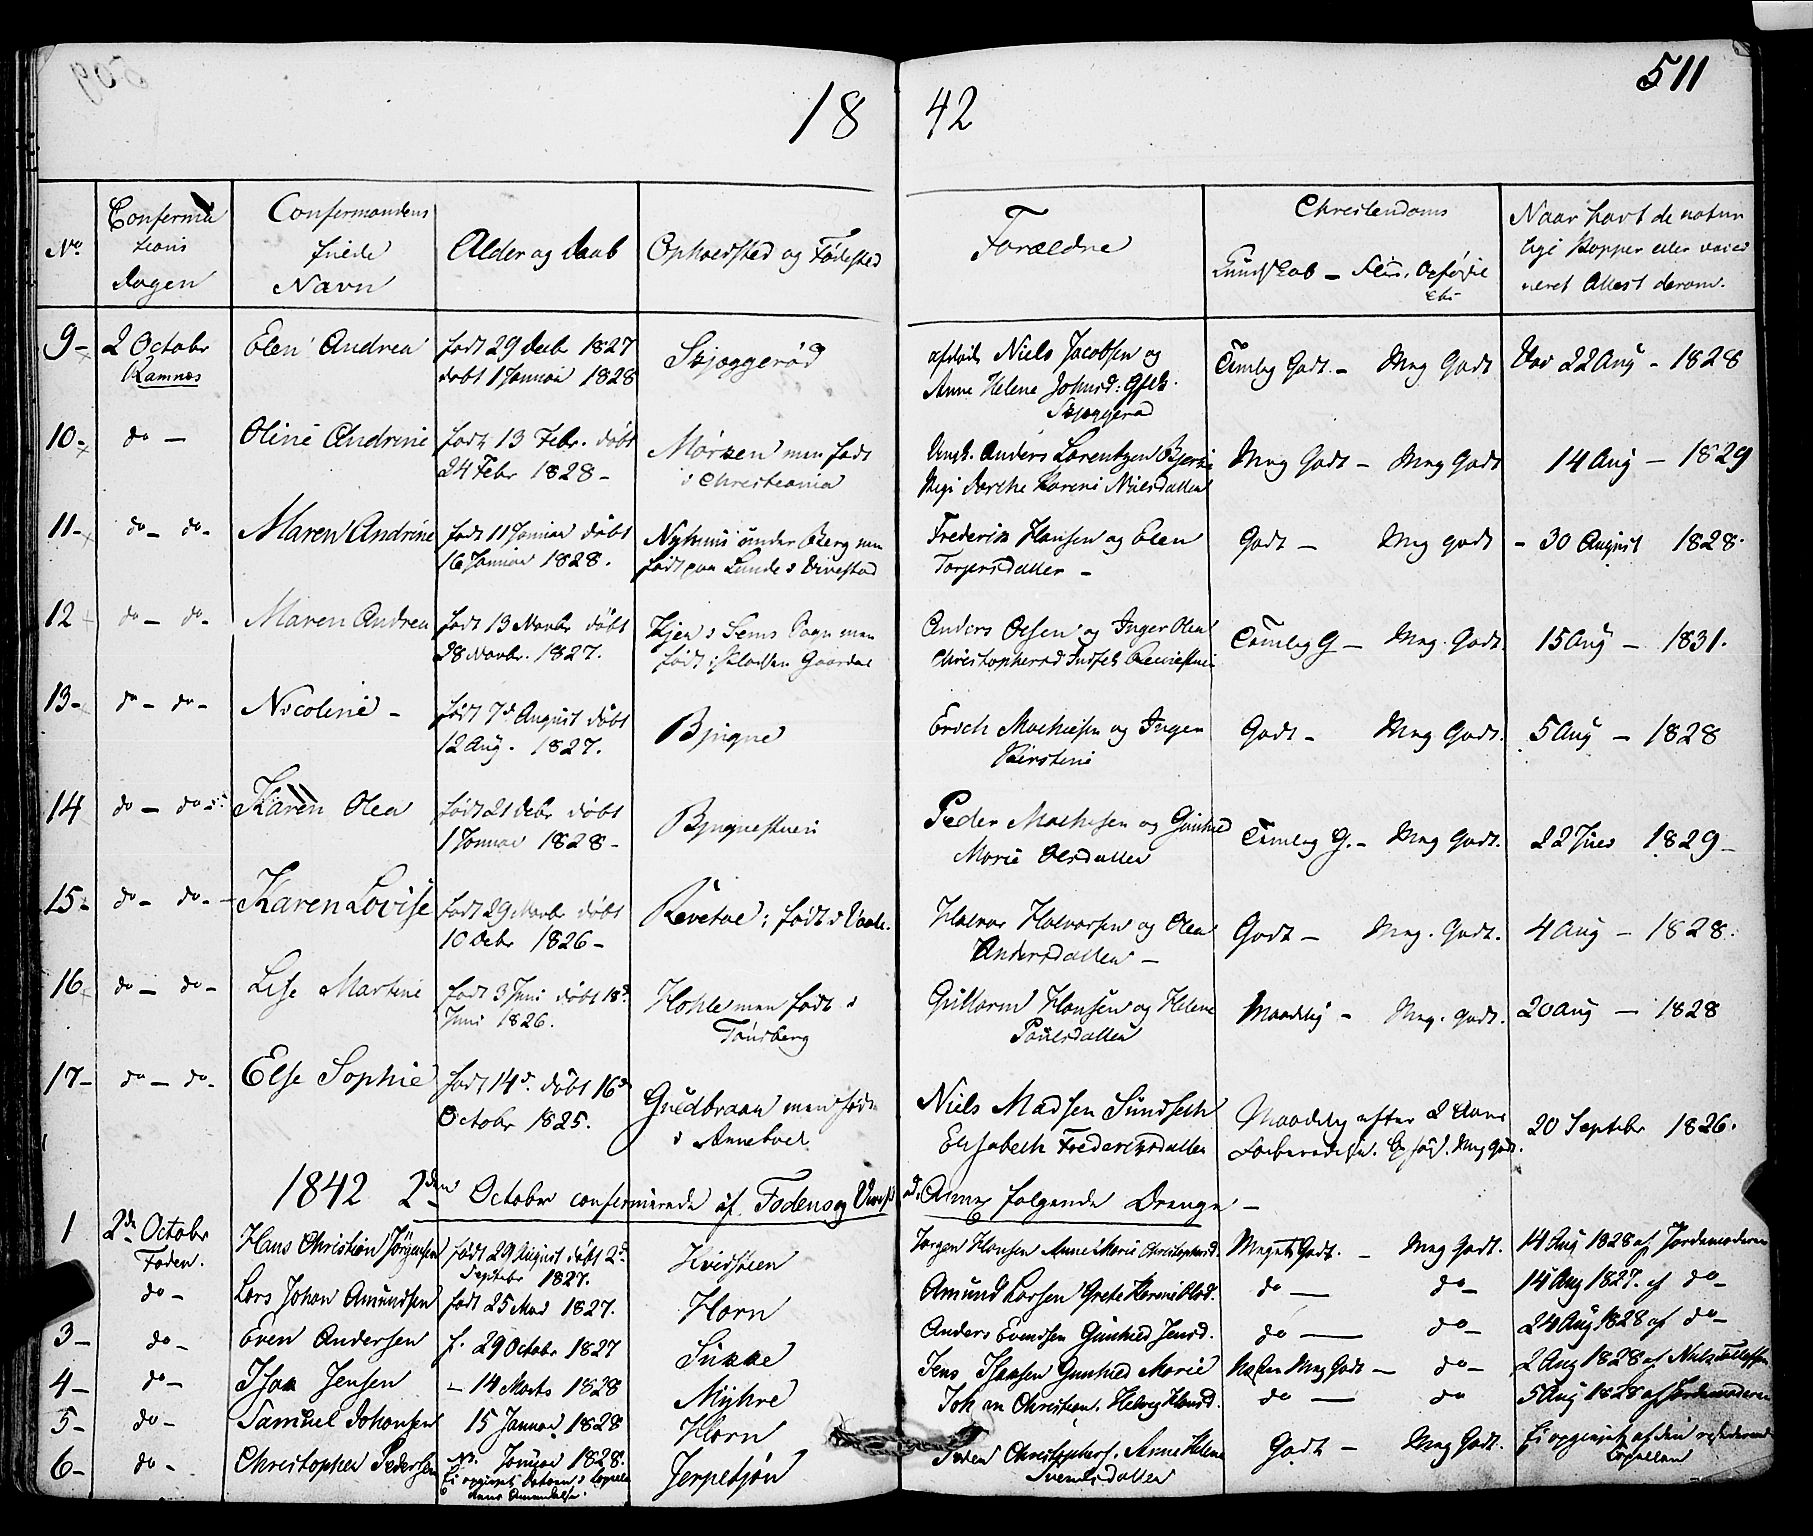 511
18 42
No. Conferma Confermandens Alder og Daab Ophold­sted og Fødested Forældre Christendoms Naar havt de natur
tions fulde Kundskab — Flid, Opførsel lige Kopper eller vacci
dagen Navn etc neret Attest derom.
9 - 2 Octobr Elen Andrea født 29 Decb 1827 Skjæggerød afdøde Niels Jacobsen og Temlig Godt. - Meg Godt Vac 22 Aug - 1828
Ramnes døbt 1 Januar 1828 Anne Helene Johnsd:
Skjæggerød
10 - do — Oline Andrine født 13 Febr. døbt Mørken men født Ungk. Anders Lorentzen Meg Godt - Meg Godt 14 Aug - 1829
24 Febr 1828 - i Christiania Pige Dorthe Karene Nielsdatter
11 - do - do - Maren Andrine født 11 Januar døbt Nyhuus under Berg men Frederik Hansen og Elen Godt - Meg godt - 30 August 1828.
16 Januar 1828. født paa Lunde i Torgersdatter -
12 do - do - Maren Andrea født 13 Novbr døbt Kjær i Sems Sogn men Anders Olsen og Inger Olea Temlig G - Meg. Godt. 15 Aug - 1831.
28 Novbr. 1827. født Gaarder Christophersd
13 - do - do - Nicoline - født 7de August døbt Bjugne Erich Mathiesen og Inger Godt - Meg Godt. 5 Aug - 1828
12 Aug. 1827. Kirstine
14 do - do - Karen Olea født 21 Debr døbt Bjugnestuen Peder Mathisen og Gunhild Temlig G. - Meg Godt. 22 1829 -
1 Januar 1828 - Marie Olsdatter
15 - do - do - Karen Lovise født 29 Novbr døbt Revetal; født i Vaale. Halvor Halvorsen og Olea Godt - Meg. Godt. 4 Aug - 1828.
10 Debr 1826 - Andersdatter -
16 do - do - Lise Martine født 3 Juni døbt 18de Hohle men født i Guttorm Hansen og Helene Maadelig - Meg. godt. 20 Aug - 1828
Juni 1826. Tønsberg Paulsdatter
17 - do - do - Else Sophie født 14de døbt 16de Gulbraan men født Niels Madsen Sundseth Maadelig efter 2 Aars 20 Septebr 1826.
Octobr 1825. i Anneboel Elisabeth Fredericsdatter Forberedelse. Meg Godt.
1842 2den October confermerede af Fodens og Annex følgende Drenge -
1 2de Octobr Hans Christian Jørgensen født 29 August døbt 2de Hvidsteen Jørgen Hansen Anne Marie Christophersd. Meget Godt. - Meg Godt. 14 Aug 1828 af Jordemoderen
Foden. Septebr 1827.
do - Lars Johan Amundsen født 25 Mai 1827. Horn Amund Larsen Grete Karine do — do - 14 Aug 1827. af do -
3 - do - Even Andersen f. 29 Octobr 1827 Sukke Anders Evendsen Gunhild Jensd. do — do - 24 Aug 1828 af do -
4 - do - Isak Jensen - 14 Marts 1828 Myhre Jens Isaksen Gunhild Marie Meg Godt - do - 2 Aug 1828 af Niels
5 - do - Samuel Johansen 15 Januar 1828 Horn Johan Christian. Helvig Hansd. do — do 5 Aug 1828 af Jordemoderen
6 - do - Christopher Pedersen Januar 1828. Jerpetjøn Peder Christophers. Anne Helene Godt - Meg Godt. Ei opgivet af den
Ei opgivet Svendsdatter Capellan